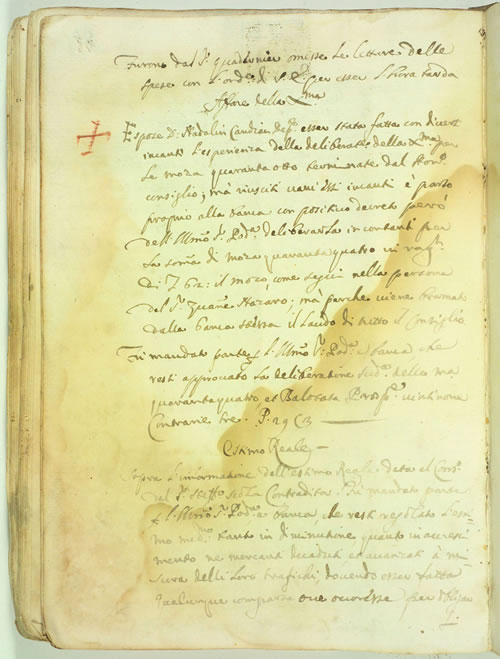 Furono dal Sr. quadernier omesse le letture delle
spese con l'ord: di S. E. per esser l'hora tarda
Affare della
Espose Dr. Nadalin Candian esser stata fatta con diversi
incanti l'esperienza della deliberat: della per
le moza quaranta otto terminate dal
consiglio; mà riusciti vani essi incanti è parso
proprio alla banca con positivo decreto però
dell' Illmo Sr. Pod: deliberarla in contanti per
la soma di moza quaranta quatro in rag:
di 62: il mozo, come seguì nella persona
del Sr. Zuane Nazaro; mà perche viene
dalla banca istessa il laudo di tutto il Consiglio.
Fù mandato parte l'Illmo Sr. Pod: e banca che
resti approvata la deliberatione sud: delle ma
quarantaquatro, et Balotata vintinove
Contrarie tre. P. 29 C 3
Estimo Reale
sopra l'informatione dell'estimo Reale data al Cons:
dal Sr. sotto Contradita. Fù mandato parte
l'Illmo Sr. Pod: e banca, che resti regolato l'esti
mo med: tanto in diminutione quanto in acresi
mento ne mercanti decaduti, et avanzati à mi
sura delli loro trafichi, dovendo esser fatta
qualunque comparsa ove ocoresse per